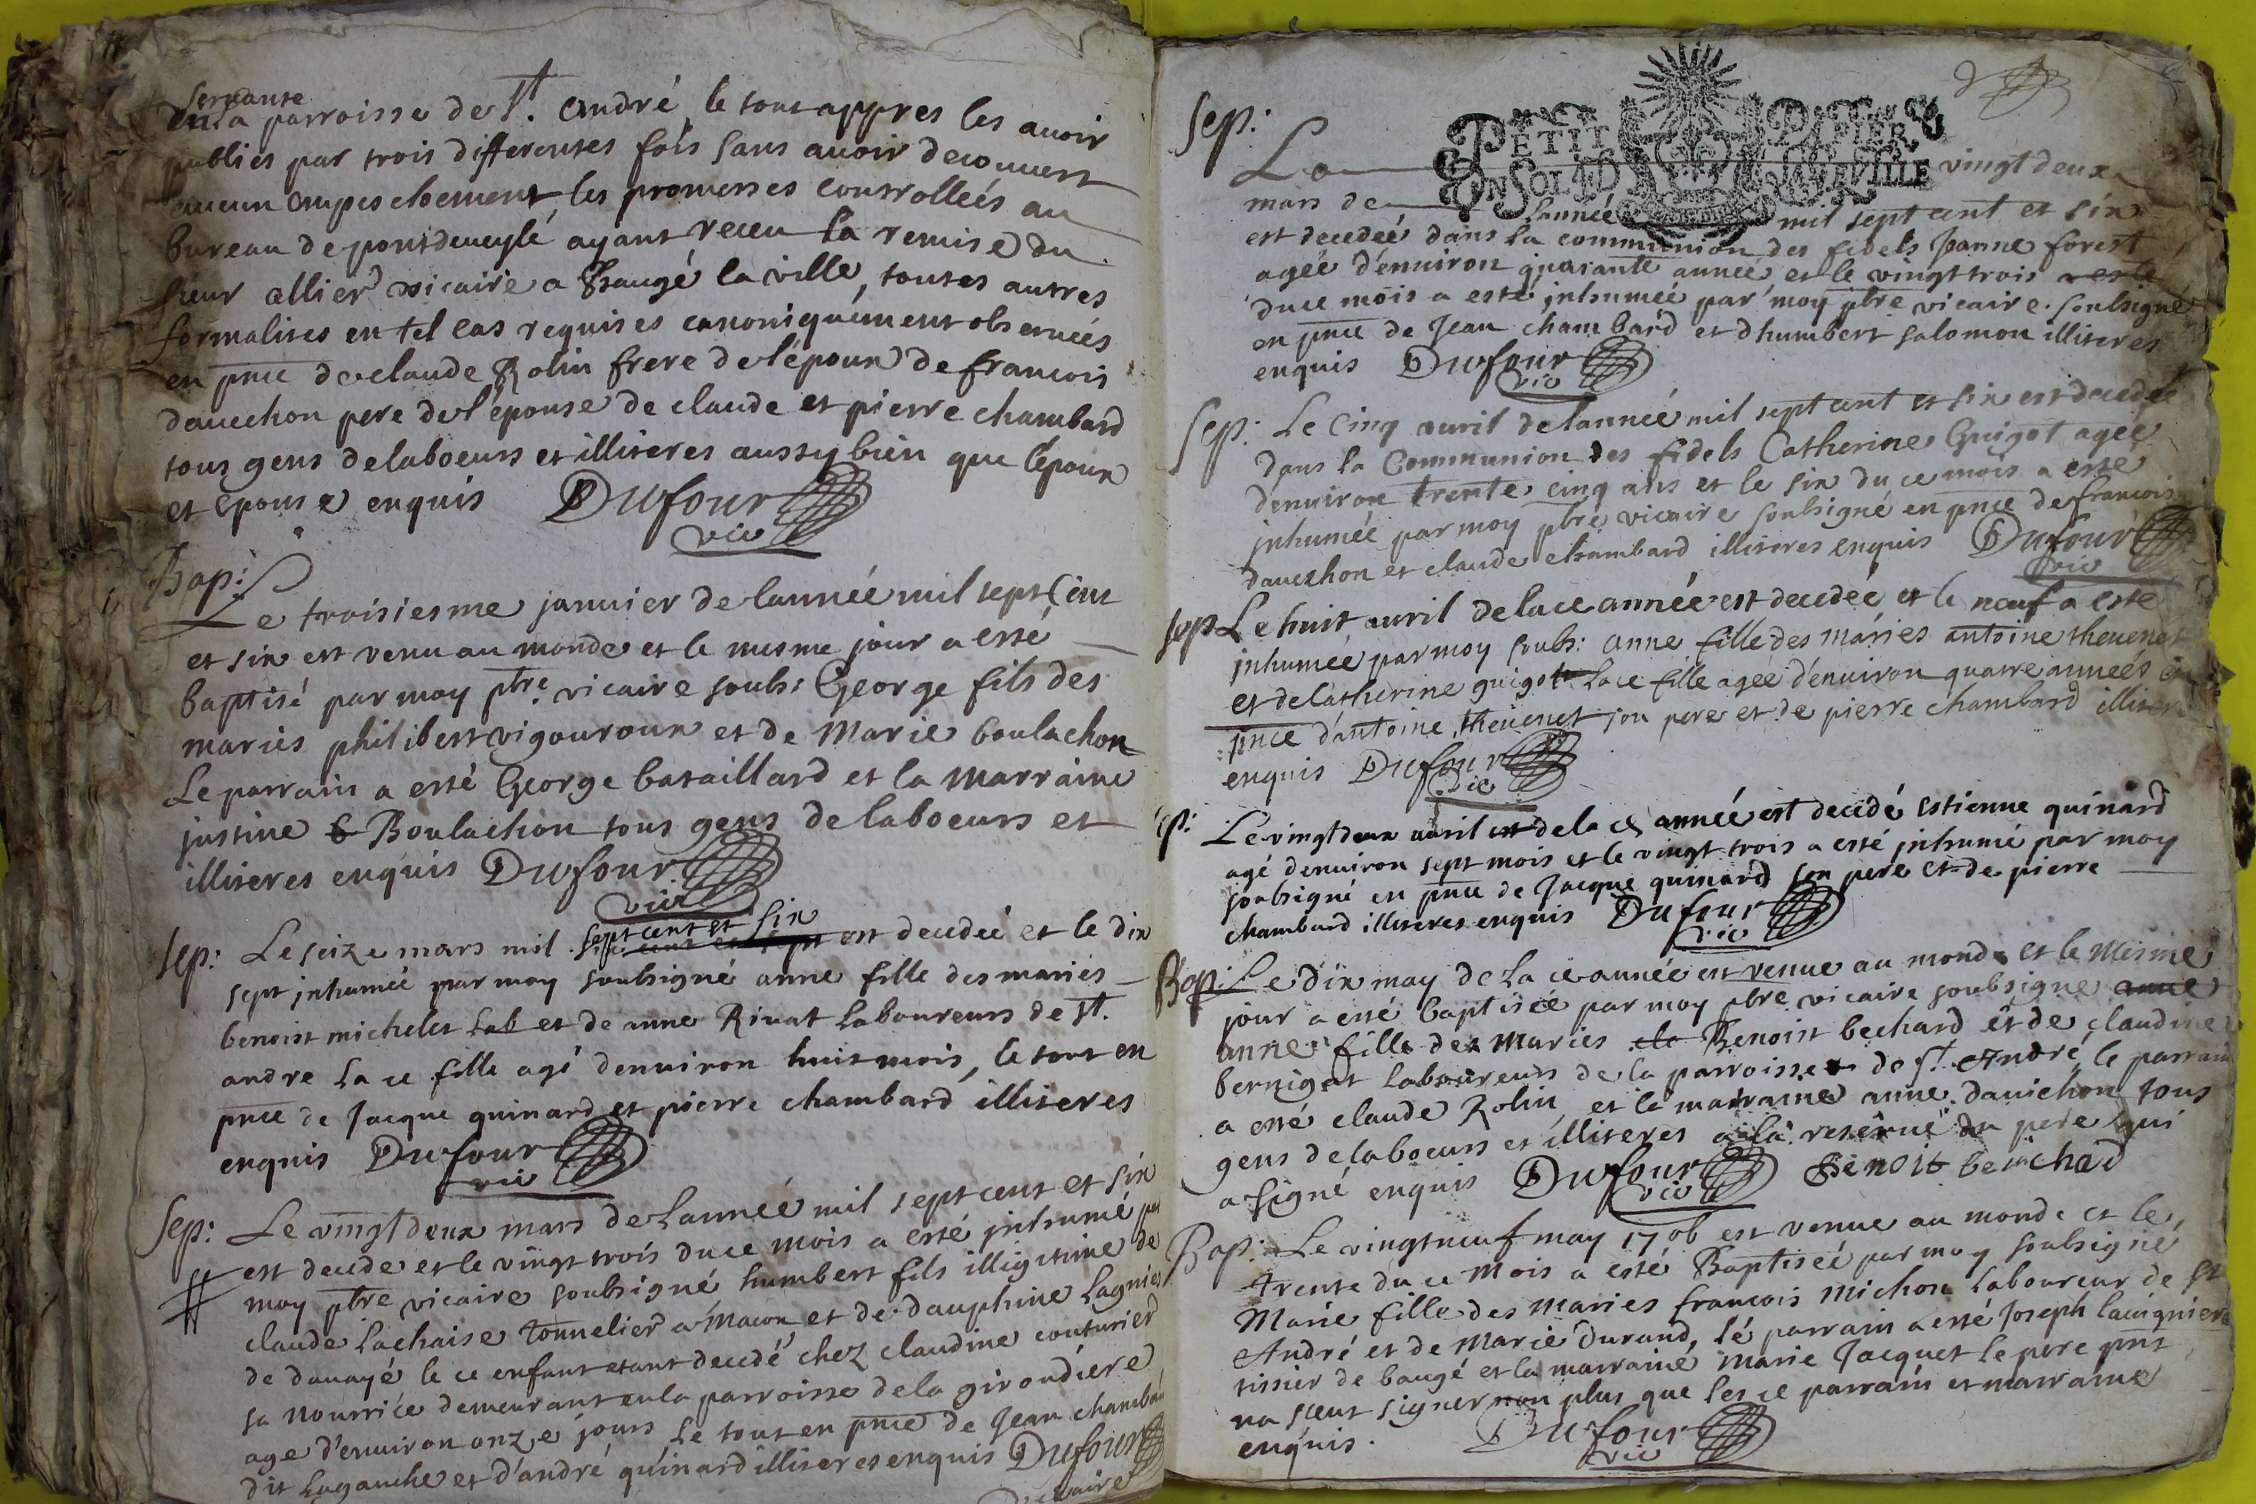 servante
en la parroisse de St. André, le tout appres les avoir
publiés par trois differentes fois sans avoir decouvert
aucun empeschement les promesses controlleés au
bureau de pontdeveylé ayant receu la remise du
sieur allier vicaire a Baugé la ville, toutes autres
formalites en tel cas requises canoniquement observeés
en pnce de claude Rolin frere de l'époux de francois
dauechon pere de l'épouse de claude et pierre chambard
tous gens delaboeurs et illiteres aussy bien que l'époux
et epouse enquis Dufour
vic
Bap:
Le troisiesme janvier de lannéé mil sept Cent
et six est venu au monde et le mesme jour a esté
baptisé par moy pbre. vicaire soubs: George fils des
mariés philibert vigouroux et de Marie boulachon
Le parrain a esté George bataillard et la marraine
justine B Boulachon tous gens delaboeurs et
illiteres enquis Dufour
vic
sept cent et six
Sep: Le seize mars mil est decedeé et le dix
sept inhumeé par moy soubsigné anne fille des mariés
benoist michelet lab et de anne Rivat laboureurs de St.
andre la ce fille agé denviron huit mois, le tout en
pnce de Jacque guinard et pierre chambard illiteres
enquis Dufour
vic
Sep: Le vingt deux mars de lanneé mil sept cent et six
est decedé et le vingt trois du ce mois a esté inhumé par
moy pbre vicaire soubsigné humbert fils illigitime de
claude Lachaise Tonnelier a Macon et de dauphine Lagnier
de davayé le ce enfant etant decedé chez claudine couturier
sa nourrice demeurant en la parroisse de la girondiere
age d'environ onze jours Le tout en pnce de Jean chambard
dit Laganche et d'andré guinard illiteres enquis Dufour
vicaire
Sep:
PETIT PAPIER
UN SOL LA FEUILLE
Le vingt deux
mars de lanneé mil sept cent et six
est decedeé dans la communion des fidels Jeanne forest
ageé d'environ quarante anneé et le vingt trois
du ce mois a esté inhumeé par moy pbre vicaire soubsigné
en pnce de Jean chambard et dhumbert salomon illiteres
enquis Dufour
vic
Sep: Le Cinq avril de lanneé mil sept cent et six est decedeé
dans la Communion des fidels Catherine Guigot ageé
d'environ trente cinq ans et le six du ce mois a esté
inhumeé par moy pbre vicaire soubsigné en pnce de francois
dauechon et claude chambard illiteres enquis Dufour
vic
Sep Le huit avril de la ce anneé est decedeé et le neuf a esté
inhumeé par moy soubs: anne fille des mariés antoine thevenet
et de Catherine guigot la ce fille ageé d'environ quatre anneés en
pnce d'antoine thevenet son pere et de pierre chambard illiteres
enquis Dufour
vic
Sep: Le vingt deux avril de la ce anneé est decedé estienne guinard
agé denviron sept mois et le vingt trois a esté inhumé par moy
soubsigné en pnce de Jacque guinard son pere et de pierre
chambard illiteres enquis Dufour
vic
Bap: Le dix may de la ce anneé est venue au monde et le mesme
jour a esté baptiseé par moy pbre vicaire soubsigne
anne fille des mariés Benoist bechard et de claudine
bernigot laboureurs de la parroisse de St. André, le parrain
a esté claude Rolin et la marraine anne dauichon tous
gens de laboeurs et illiteres a la reserve du pere qui
a signé enquis Dufour Benoit beuchad
vic
Bap: Le vingt neuf may 1706 est venue au monde et le
trente du ce mois a esté Baptiseé par moy soubsigné
Marie fille des mariés francois michon laboureur de St
André et de Marie Durand, lé parrain a esté Joseph lavignier
tissier de baugé et la marrainé marie Jacquet le pere pnt
na sceut signer non plus que les ce parrain et marraine
enquis. Dufour
vic